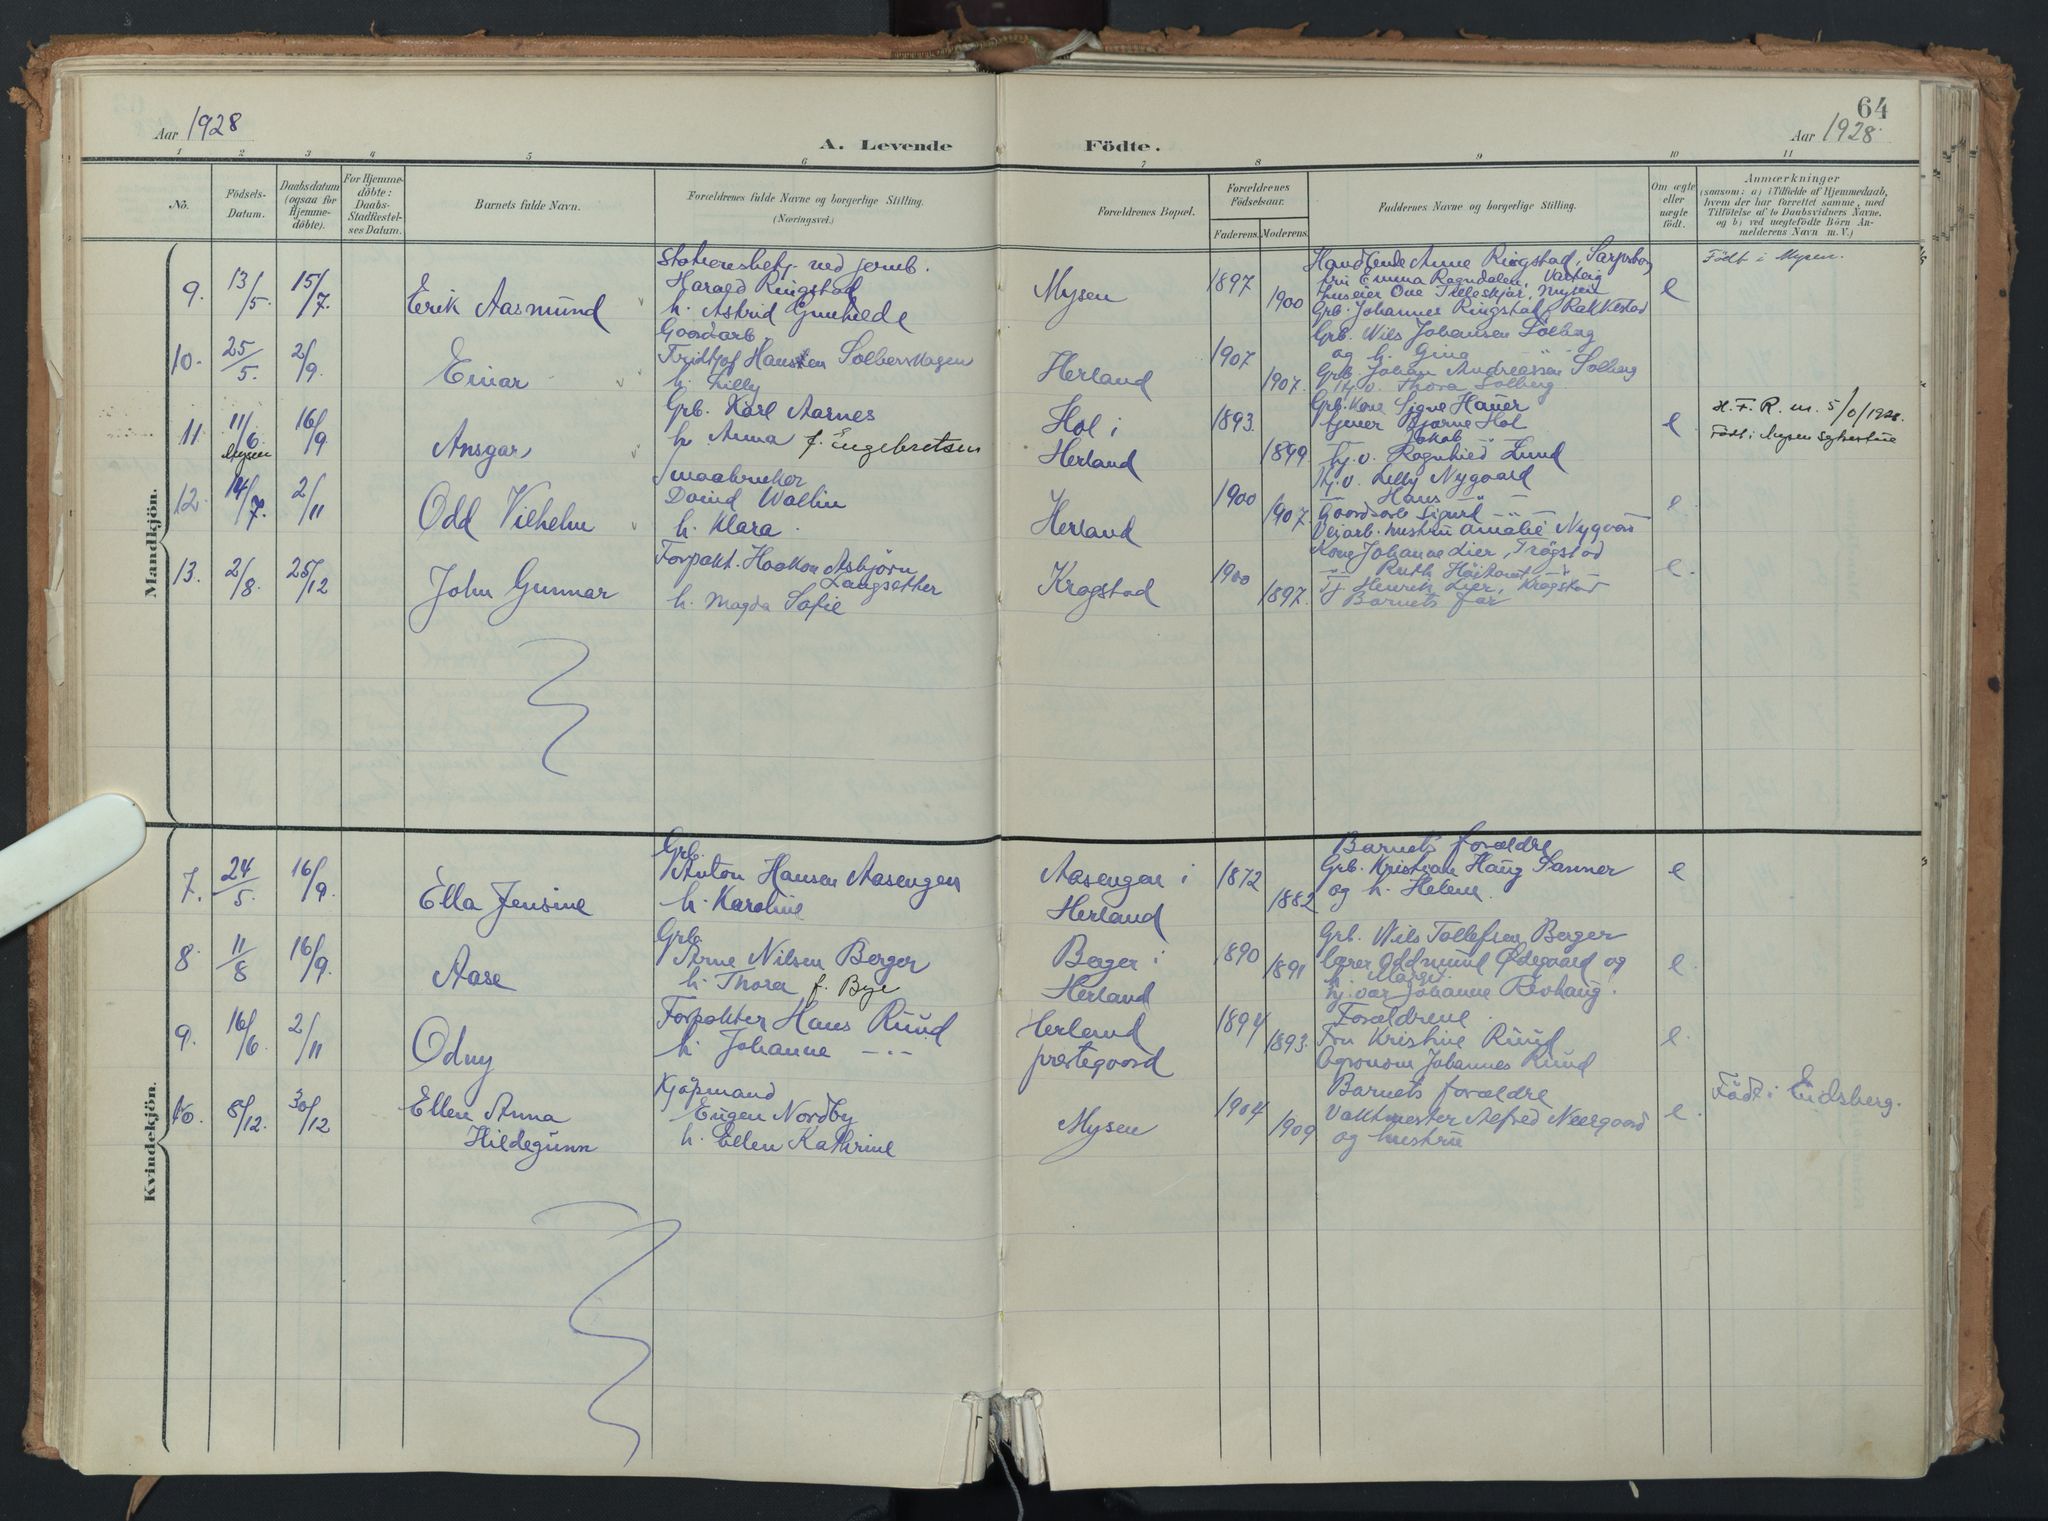 64
Aar 1928
Aar 1928.
A. Levende Födte.
1 2 3 4 5 6 7 8 9 10 11
Nö.
Födsels-
Datum.
Daabsdatum
(ogsaa for
Hjemme-
döbte).
For Hjemme-
döbte:
Daabs-
Stadfæstel-
ses Datum.
Barnets fulde Navn.
Forældrenes fulde Navne og borgerlige Stilling.
(Næringsvei.)
Forældrenes Bopæl.
Forældrenes
Födselsaar.
Faderens. Moderens.
Faddernes Navne og borgerlige Stilling.
Om ægte
eller
uægte
födt.
Anmærkninger
(saasom: a) i Tilfælde af Hjemmedaab,
hvem der har forrettet samme, med
Tilföielse af to Daabsvidners Navne,
og b) ved uægtefödte Börn An-
melderens Navn m. V.)
Mandkjön.
9. 13/5. 15/7. Erik Aasmund
Stationsbetj. ved jernb.
Harald Ringstad
h. Astrid Gunhilde
Mysen
1897
1900
Handlende Anne Ringstad, Sarpsborg
Emma Ragndalen, Varteig
Ove
Grb. Johannes Ringstad, Rakkestad
e
Född i Mysen.
10. 25/5. 2/9. Einar
Gaardarb
Fridtjof Hansen Solbergshagen
h. Lilly
Herland
1907
1907.
Grb. Nils Johansen Solberg
og h. Gina - " -
Grb. Johan Andreassen Solberg
Tj. v. Thora Solberg.
11. 11/6. 16/9. Ansgar
Mysen
Grb. Karl Aarnes
h. Anna f. Engebretsen
Hol i
Herland
1893.
1899
Grb. kone Signe Hauer
Bjarne Hol
Jakob "
Tj. v. Ragnhild Lund
e
H. F. R. m.
Född i Mysen
12. 14/7. 2/11 Odd Vilhelm
Smaabruker
David Wallin
h. Klara.
Herland
1900
1907.
Tj. v. Lilly Nygaard
- " - Hans - " -
Gaardsarb Sigurd - " -
Veiarb. hustru Amalie
e
13. 2/8. 25/12 John Gunnar
Forpakt. Haakon Asbjörn
Langsether
h. Magda Sofie
Krogstad
1900
1897.
Kone Johanne Lier, Trögstad
Ruth
Tj. Henrik Lier, Krogstad
Barnets far
e.
Kvindekjön.
7. 24/5. 16/9. Ella Jensine
Grb.
Anton Hansen Aasengen
h. Karoline
Aasengen i
Herland
1872
1882
Barnets forældre
Grb. Kristian Haug Sanner
og h. Helene.
e
8. 11/8 16/9. Aase
Grb.
Arne Nilsen Berger
h. Thora f. Bye
Berger i
Herland
1890
1891
Grb. Nils Tollefsen Berger
lærer Oddmund Ødegaard og
h. Margit.
Tj. var Johanne Revhaug.
e.
9. 16/6. 2/11 Odny
Forpakter Hans Ruud
h. Johanne - " -
Herland
prestegaard
1894
1893.
Forældrene.
Fru Kristine Ruud
Agronom Johannes Ruud
e.
10. 8/12. 30/12 Ellen Anna
Hildegunn
Kjöpmand
Eugen Nordby
h. Ellen Kathrine
Mysen
1904
1909
Barnets forældre
Vaktmester Alfred Neergaard
og hustru
e.
Födt i Eidsberg.